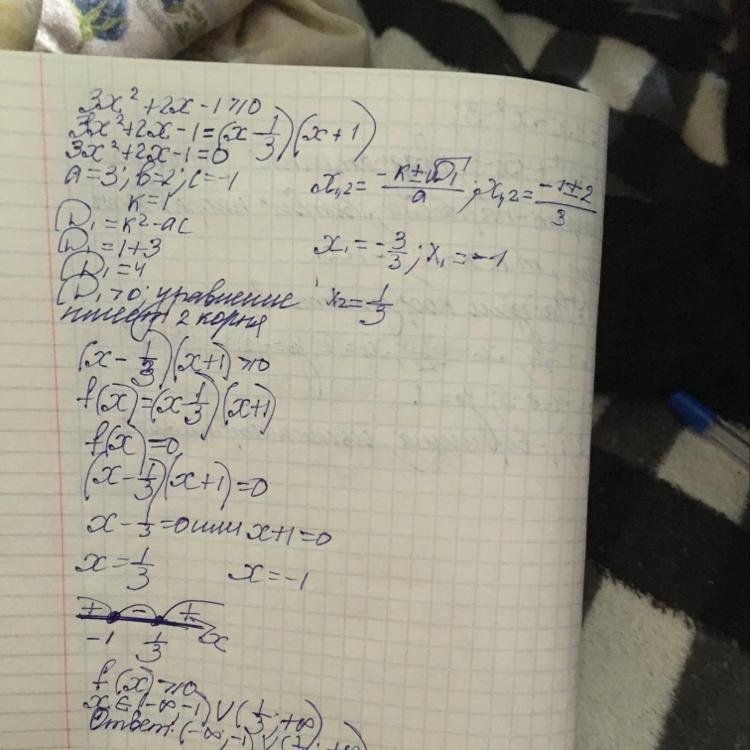 3x² + 2x - 1 ⩾ 0
3x² + 2x - 1 = (x - 1/3)(x + 1)
3x² + 2x - 1 = 0
a = 3; в = 2; c = -1
к = 1
D₁ = к² - ac
D₁ = 1 + 3
D₁ = 4
D₁ > 0; уравнение
имеет 2 корня
x₁,₂ = (-к ± √D₁)/a ; x₁,₂ = (-1 ± 2)/3
x₁ = -3/3; x₁ = -1
x₂ = 1/3
(x - 1/3)(x + 1) ⩾ 0
f(x) = (x - 1/3)(x + 1)
f(x) = 0
(x - 1/3)(x + 1) = 0
x - 1/3 = 0 или x + 1 = 0
x = 1/3 x = -1
+ - +
-1 1/3 x
f(x) ⩾ 0
x ∈ (-∞; -1) ∪ (1/3; +∞)
Ответ: (-∞; -1) ∪ (1/3; +∞)